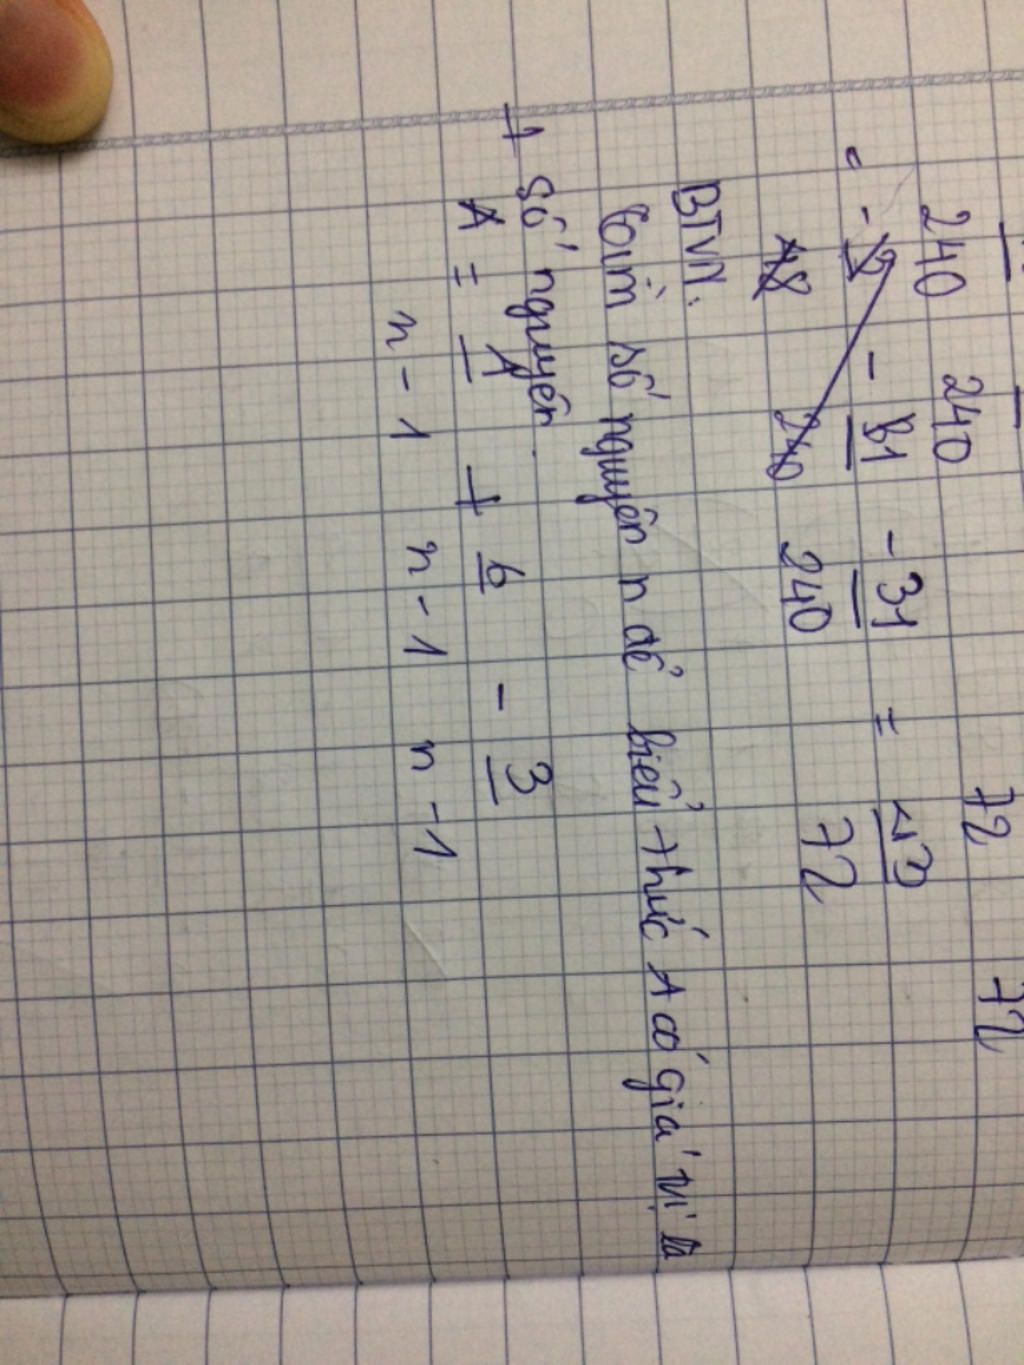 240 240 72 72
= - - 81 - 31 = 72
48 240 240
BTVN.
tìm số nguyên n để biểu thức A có giá trị là
1 số nguyên
A = 1/n-1 + 6/n-1 - 3/n-1